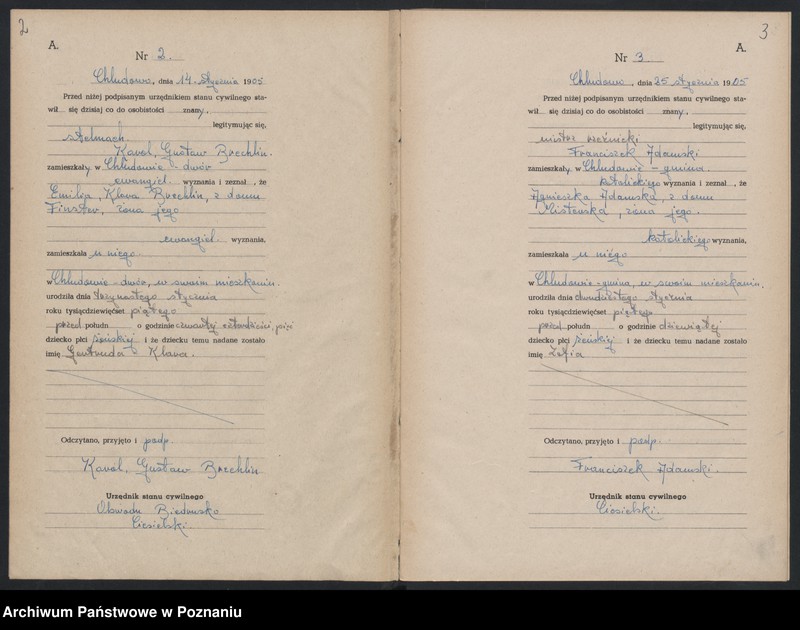 2
A.
Nr 2.
Chludowo, dnia 14. stycznia 1905
Przed niżej podpisanym urzędnikiem stanu cywilnego sta-
wił się dzisiaj co do osobistości znany,
legitymując się,
stelmach
Karol, Gustaw Brechlin.
zamieszkały w Chludowie - dwór
ewangiel. wyznania i zeznał, że
Emilja, Klara Brechlin, z domu
Finster, żona jego
ewangiel. wyznania,
zamieszkała u niego.
w Chludowie - dwór, w swoim mieszkaniu.
urodziła dnia trzynastego stycznia
roku tysiącdziewięćset piątego
przed połudn o godzinie czwartej czterdzieści, pięć
dziecko płci żeńskiej i że dziecku temu nadane zostało
imię Gertruda Klara.
Odczytano, przyjęto i podp.
Karol, Gustaw Brechlin
Urzędnik stanu cywilnego
Obwodu Biedrusko
Ciesielski
3
A.
Nr 3
Chludowo, dnia 25 stycznia 1905
Przed niżej podpisanym urzędnikiem stanu cywilnego sta-
wił się dzisiaj co do osobistości znany,
legitymując się,
mistrz rzeźnicki
Franciszek Adamski
zamieszkały w Chludowie - gmina
katolickiego wyznania i zeznał, że
Agnieszka Adamska, z domu
żona jego.
katolickiego wyznania,
zamieszkała u niego
w Chludowie - gmina, w swoim mieszkaniu.
urodziła dnia dwudziestego stycznia
roku tysiącdziewięćset piątego
przed połudn o godzinie dziewiątej
dziecko płci żeńskiej i że dziecku temu nadane zostało
imię Zofia
Odczytano, przyjęto i podp.
Franciszek Adamski.
Urzędnik stanu cywilnego
Ciesielski.
Archiwum Państwowe w Poznaniu